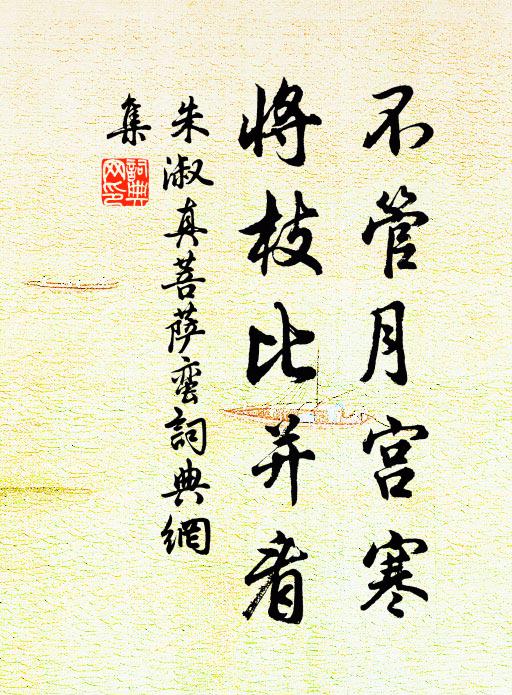 不管月宫寒
將枝比并看
朱淑真菩萨蛮詞典網
集
詞典
网印